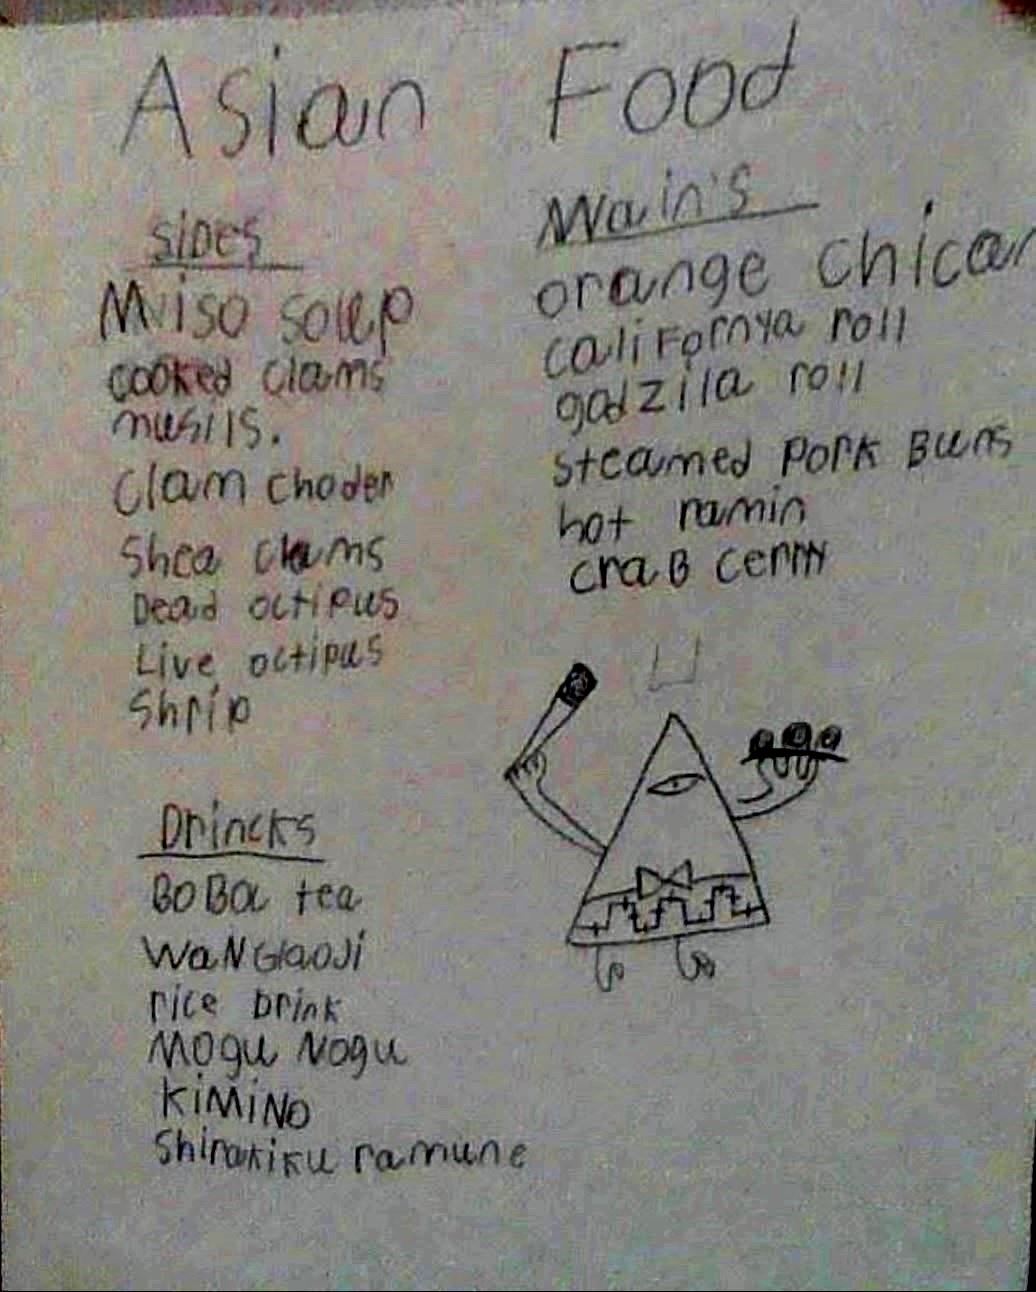 Asian Food
SiDes
Miso soup
cooked clams
musils.
Clam choder
Shea clams
Dead octipus
Live octipus
Shrip
Drincks
BoBa tea
WaNGlaoJi
rice Drink
MOgu NOgu
KiMiNo
Shirakiku ramune
Main's
orange chican
califormya roll
godzilla roll
steamed Pork Buns
hot ramin
craB